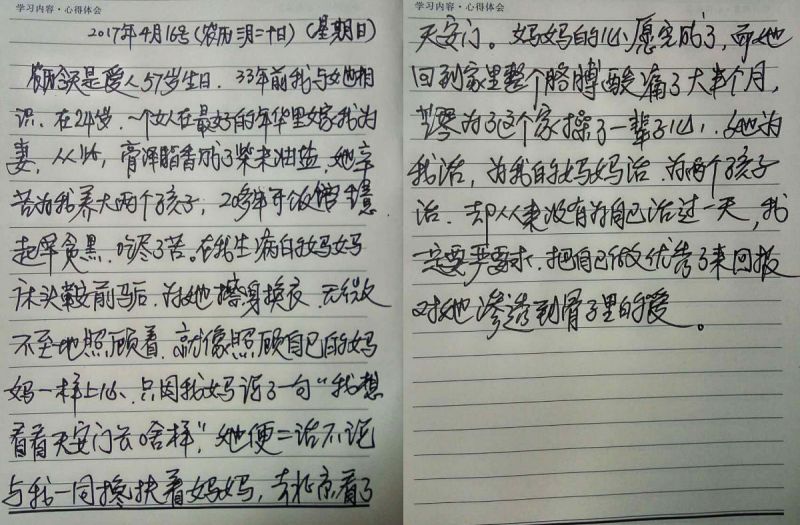 学习内容·心得体会
2017年4月16号(农历三月二十日)(星期日)
今天是爱人57岁生日。33年前我与她相
识、在24岁、一个女人在最好的年华里嫁我为
妻,从此,膏泽脂香成了柴米油盐,她辛
苦为我养大两个孩子,20多年开饭馆
起早贪黑、吃尽了苦。在我生病的妈妈
床头鞍前马后、为她擦身换衣、无微
不至地照顾着、就像照顾自己的妈
妈一样上心、只因我妈说了一句“我想
看看天安门去啥样”,她便二话不说
与我一同搀扶着妈妈,去北京看了
学习内容·心得体会
天安门。妈妈的心愿完成了,而她
回到家里整个胳膊酸痛了大半个月,
琴为了这个家操了一辈子心、她为
我活,为我的妈妈活、为两个孩子
活、却从来没有为自己活过一天,我
一定要严要求、把自己做优秀了来回报
对她渗透到骨子里的爱。